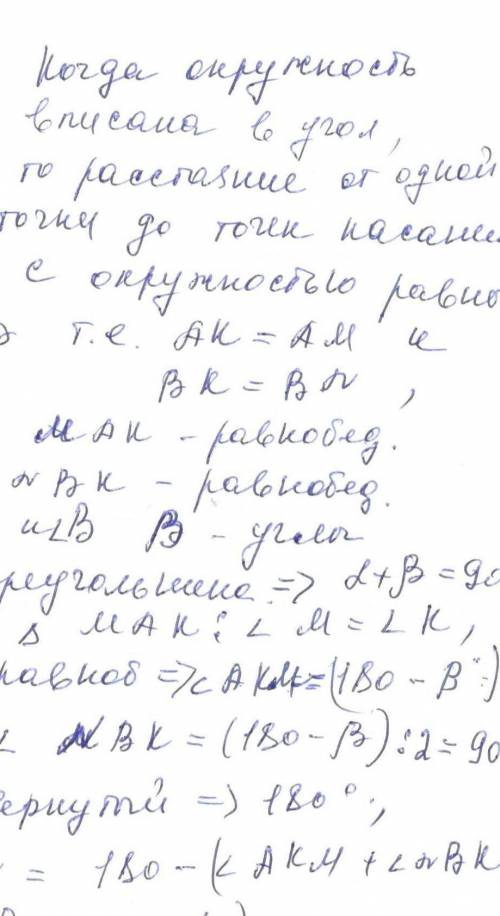 Когда окружность
вписана в угол,
то расстояние от одной
точки до точек касания
с окружностью равны
т.е. AK = AM и
BK = BN ,
MAK – равнобед.
NBK – равнобед.
и ∠B β – углы
реугольника => α+β=90
Δ MAK : ∠ M = ∠ K,
равноб => ∠ AKM = (180 – β
∠ NBK = (180 – β) : 2 = 90
вернутый => 180° ;
= 180 – (∠ AKM + ∠ NBK